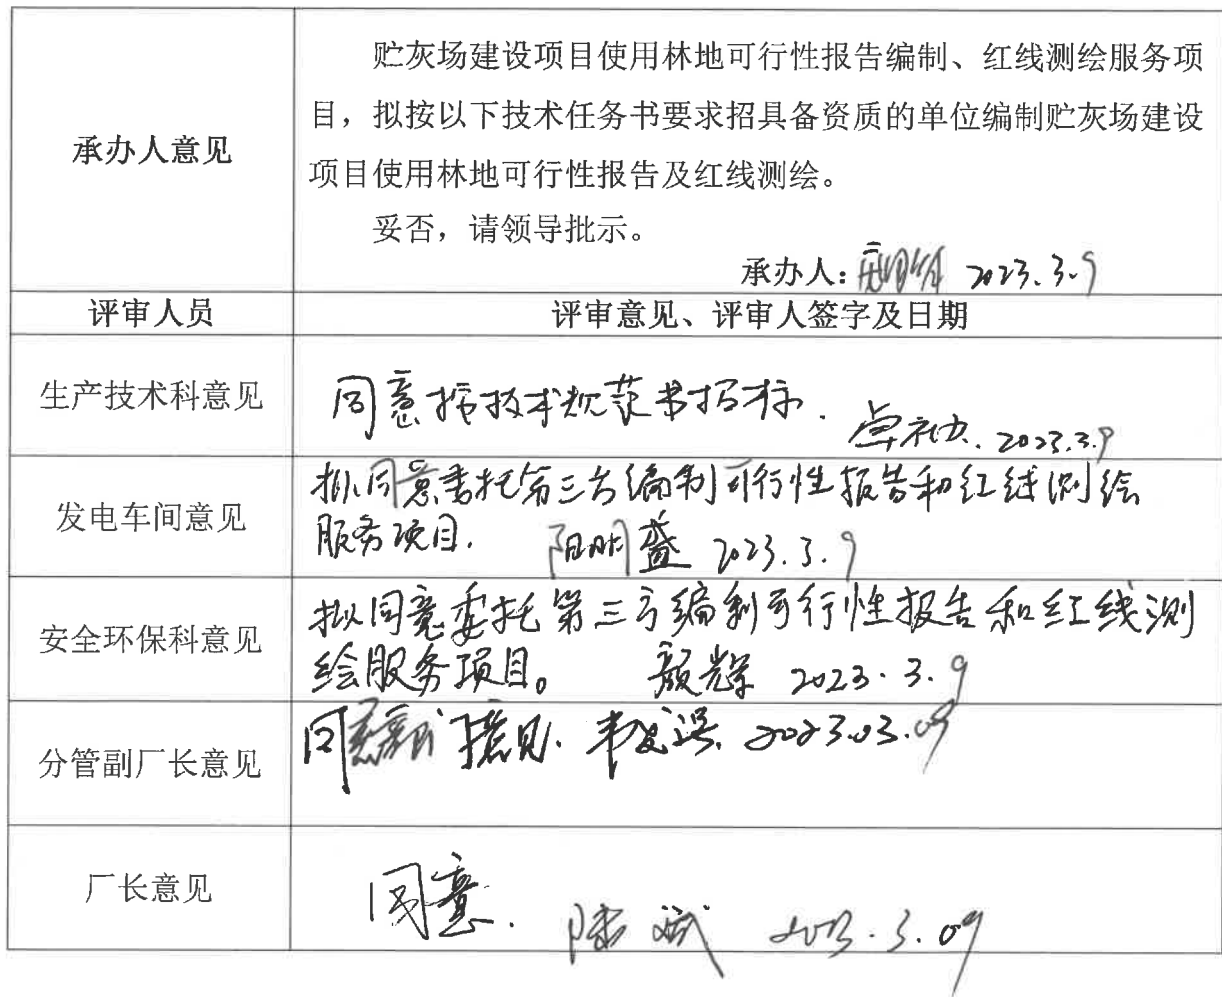 承办人意见
贮灰场建设项目使用林地可行性报告编制、红线测绘服务项
目，拟按以下技术任务书要求招具备资质的单位编制贮灰场建设
项目使用林地可行性报告及红线测绘。
妥否，请领导批示。
承办人： 2023.3.9
评审人员 评审意见、评审人签字及日期
生产技术科意见
同意按技术规范书招标.
2023.3.9
发电车间意见
拟同意委托第三方编制可行性报告和红线测绘
服务项目. 阳明盛 2023.3.9
安全环保科意见
拟同意委托第三方编制可行性报告和红线测
绘服务项目。 颜辉 2023.3.9
分管副厂长意见
同意 意见. 2023.03.09
厂长意见
同意.
陆斌 2023.3.09